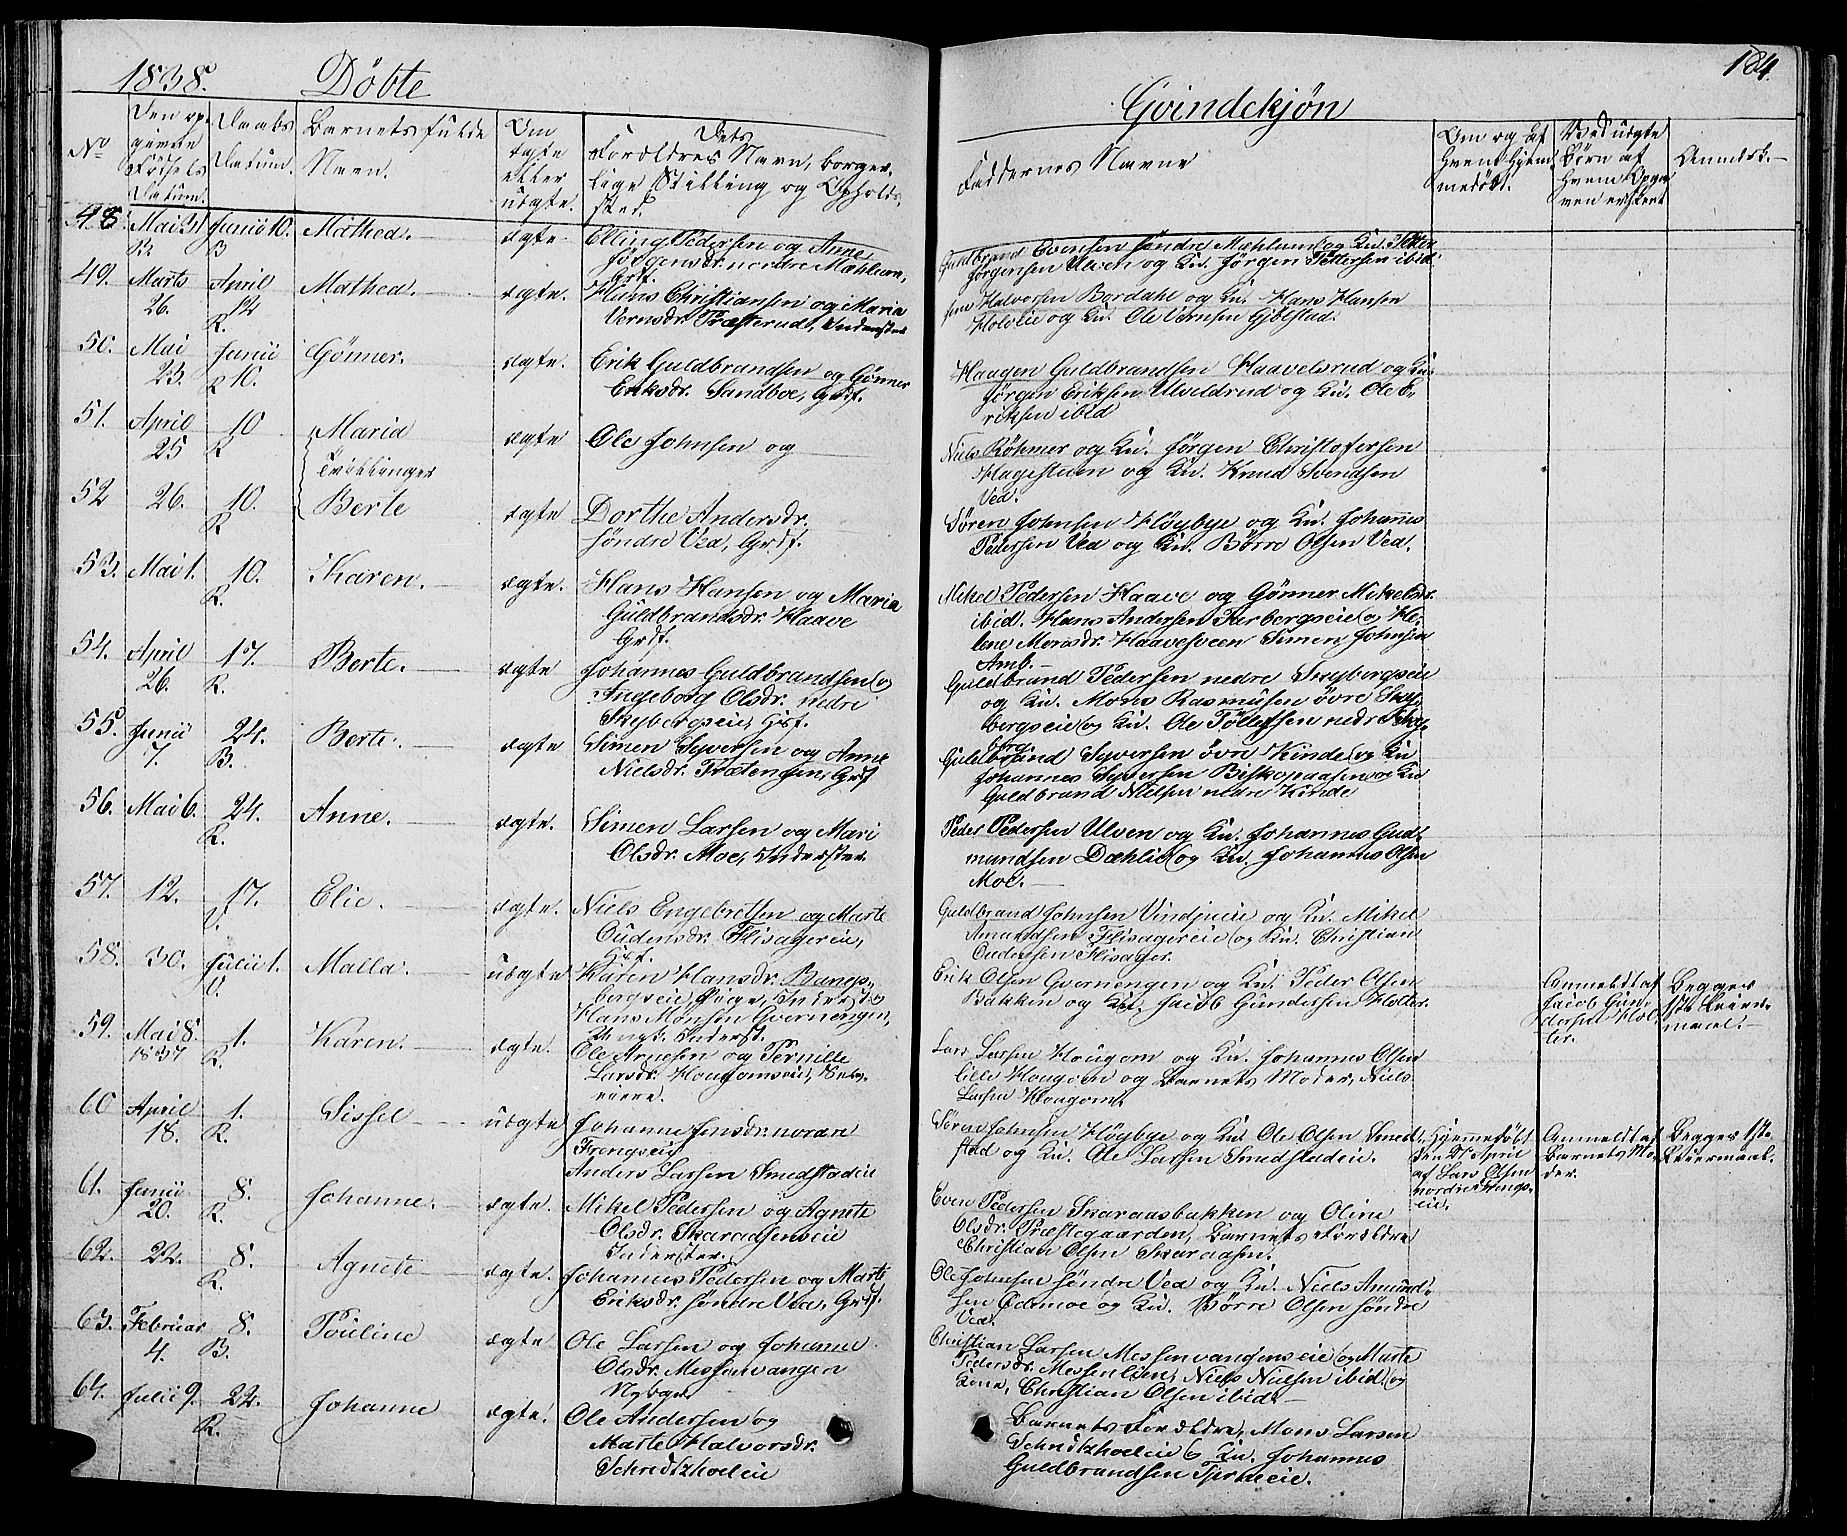 1838. Döbte
Qvindekjön
184.
No
Den op-
givne
Födsels
Datum.
Daabs
Datum.
Barnets fulde
Navn.
Om
ægte
eller
uægte.
Dets
Forældres Navn, borger-
lige Stilling og Opholds-
sted.
Faddernes Navne
Om og af
hvem hjem-
medöbt.
Ved uægte
Börn af
hvem Opga-
ven er skeet
Anmærk.
48. Mai 31 Junii 10. Mathea. ægte. Elling Pedersen og Anne
B. B Jörgensdr. nordre Mæhlum,
Grdf.
Guldbrand Evensen söndre Mæhlum og Ku. Peter
Jörgensen Ulven og Ku. Jörgen Pettersen ibid
49. Marts April Mathea. ægte. Hans Christiansen og Maria
26. 14 R. Dr. Præsterud, Inderster
Halvorsen Bordahl og Ku. Hans Hansen
og Ku. Ole
50. Mai Junii Gönner. ægte. Erik Guldbrandsen og Gönner
23. R 10. Eriksdr. Sandboe, Grdf.
Haagen Guldbrandsen Haavelsrud og Ku.
Jörgen Eriksen Ulvildrud og Ku. Ole E-
riksen ibid
51. April 10 Maria ægte Ole Johnsen og
25 R Tvillinger
Niels Röhmer og Ku. Jörgen Christofersen
Hagestuen og Ku. Knud Svendsen
Ved.
52 26. 10. Berte ægte Dorthe Andersdr.
R. söndre Ved, Grdf.
Sören Johnsen Höybye og Ku. Johannes
Pedersen Ved og Ku. Börre Olsen Ved.
53. Mai 1. 10. Karen. ægte. Hans Hansen og Maria
R. Guldbrandsdr. Haave
Grdf.
Mikel Pedersen Haave og Gönner Mikelsdr.
ibid. Hans Andersen og He-
lene Monsdr. Haavesveen Simen Johnsen
Amb.
54. April 17. Berte. ægte Johannes Guldbrandsen og
26. R. Ingeborg Olsdr. nedre
Skybergseie, Hsf.
Guldbrand Pedersen nedre Skybergseie
og Ku. Mons Rasmusen övre Sky-
bergseie og Ku. Ole Tollefsen nedre Sky-
berg.
55. Junii 24. Berte. ægte Simen Syversen og Anne
7. B. Nielsdr. Frætengen, Grdf
Guldbrand Syversen övre Kinde og Ku
Johannes Syversen Biskopaasen og Ku
Guldbrand Nielsen nedre Kinde
56. Mai 6. 24. Anne. ægte. Simen Larsen og Mari
R. Olsdr. Moe, Inderster
Peder Pedersen Ulven og Ku. Johannes Gud-
mundsen Dæhlie og Ku. Johannes Olsen
Moe.
57. 12. 17. Elie. ægte. Niels Engebretsen og Marte
V. Oudensdr. Flisagereie,
Hsf.
Guldbrand Johnsen og Ku. Mikel
Amundsen Flisagereie og Ku. Christian
Oudensen Flisager.
58. 30. Julii 1. Malla. uægte Karen Hansdr. Bangs-
V. bergseie, Pige, Inderst
Hans Monsen Qvernengen,
Ungk. Inderst.
Erik Olsen Qvernengen og Ku. Peder Olsen
Bakken og Ku. Jacob Gundersen Holter.
Anmeldt af
Jacob Gun-
dersen Hol-
ter.
Begges
1ste Leier-
maal.
59. Mai 8. 1. Karen. ægte. Ole Arnesen og Pernille
1837 R. Larsdr. Hougomseie, Selv-
eiere.
Lars Larsen Hougom og Ku. Johannes Olsen
lille Hougom og Barnets Moder, Niels
Larsen Hougom.
60 April 1. Sissel uægte Johanne Jensdr. nordre
18. R. Frengseie
Anders Larsen Smedstadeie
Sören Johnsen Höybye og Ku. Ole Olsen Smed-
stad og Ku. Ole Larsen Smedstadeie.
Hjemmedöbt
den 27 April
af Lars Olsen
nordre Frengs-
eie.
Anmeldt af
Barnets Mo-
der.
Begges 1ste
Leiermaal.
61. Junii 8. Johanne. ægte. Mikel Pedersen og Agnete
20. R. Olsdr. Skaraasenseie
Inderster.
Even Pedersen Skaraasbakken og Oline
Olsdr. Præstegaarden, Barnets Forældre
Christian Olsen Skaraasen.
62. 22. 8. Agnete ægte. Johannes Pedersen og Marte
R. Eriksdr. söndre Ved, Grdf.
Ole Johnsen söndre Ved og Ku. Niels Amund-
sen Ödemoe og Ku. Börre Olsen söndre
Ved.
63. Februar 8. Pouline ægte Ole Larsen og Johanne
4. B. Olsdr. Messenvangen
Nybger
Christian Larsen Messenvangenseie og Marte
Pedersdr. Messenlien, Niels Nielsen ibid. og
Kone, Christian Olsen ibid.
64. Julii 9. 22. Johanne ægte. Ole Andersen og
R. Marte Halvorsdr.
Schredtzhoeleie
Barnets Forældre, Mons Larsen
Schredtzhoeleie og Ku. Johannes
Guldbrandsen